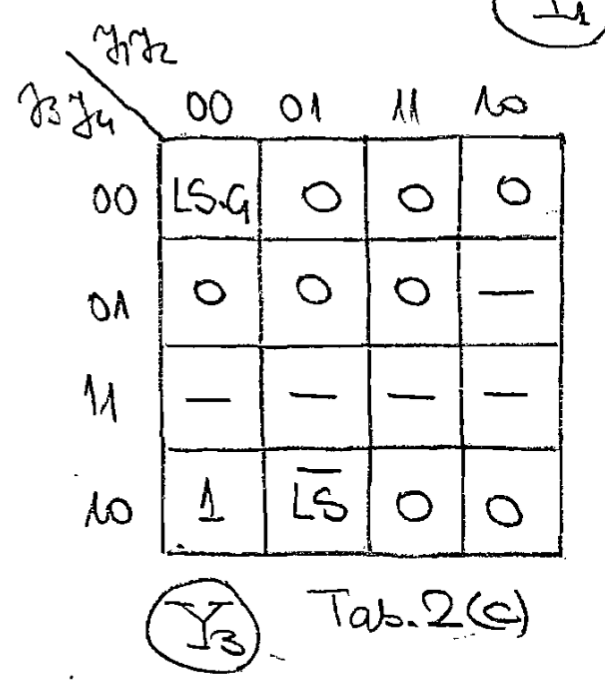 I1
y1y2
y3y4 00 01 11 10
00 LS.G 0 0 0
01 0 0 0 —
11 — — — —
10 1 L̅S̅ 0 0
Y3 Tab. 2(c)